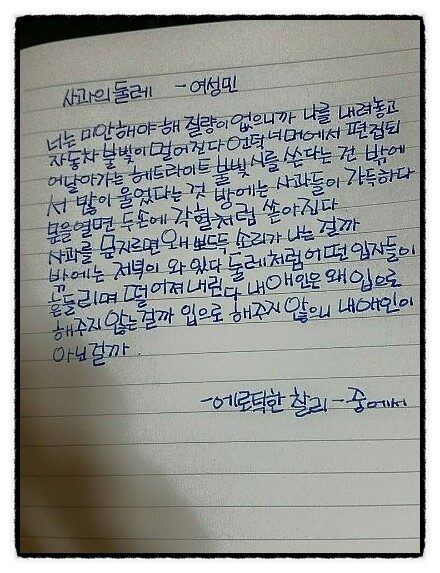 사과의 둘레 - 여성민
너는 미안해야 해 질량이 없으니까 나를 내려놓고
자동차 불빛이 멀어진다 언덕 너머에서 편집되
어 날아가는 헤드라이트 불빛 시를 쓴다는 건 밖에
서 많이 울었다는 것 방에는 사과들이 가득하다
문을 열면 두 손에 각혈처럼 쏟아진다
사과를 문지르면 왜 뽀드득 소리가 나는 걸까
밖에는 저녁이 와 있다 둘레처럼 어떤 입자들이
흔들리며 떨어져 내린다 내 애인은 왜 입으로
해주지 않는 걸까 입으로 해주지 않으니 내 애인이
아닌 걸까.
- 에로틱한 찰리 - 중에서